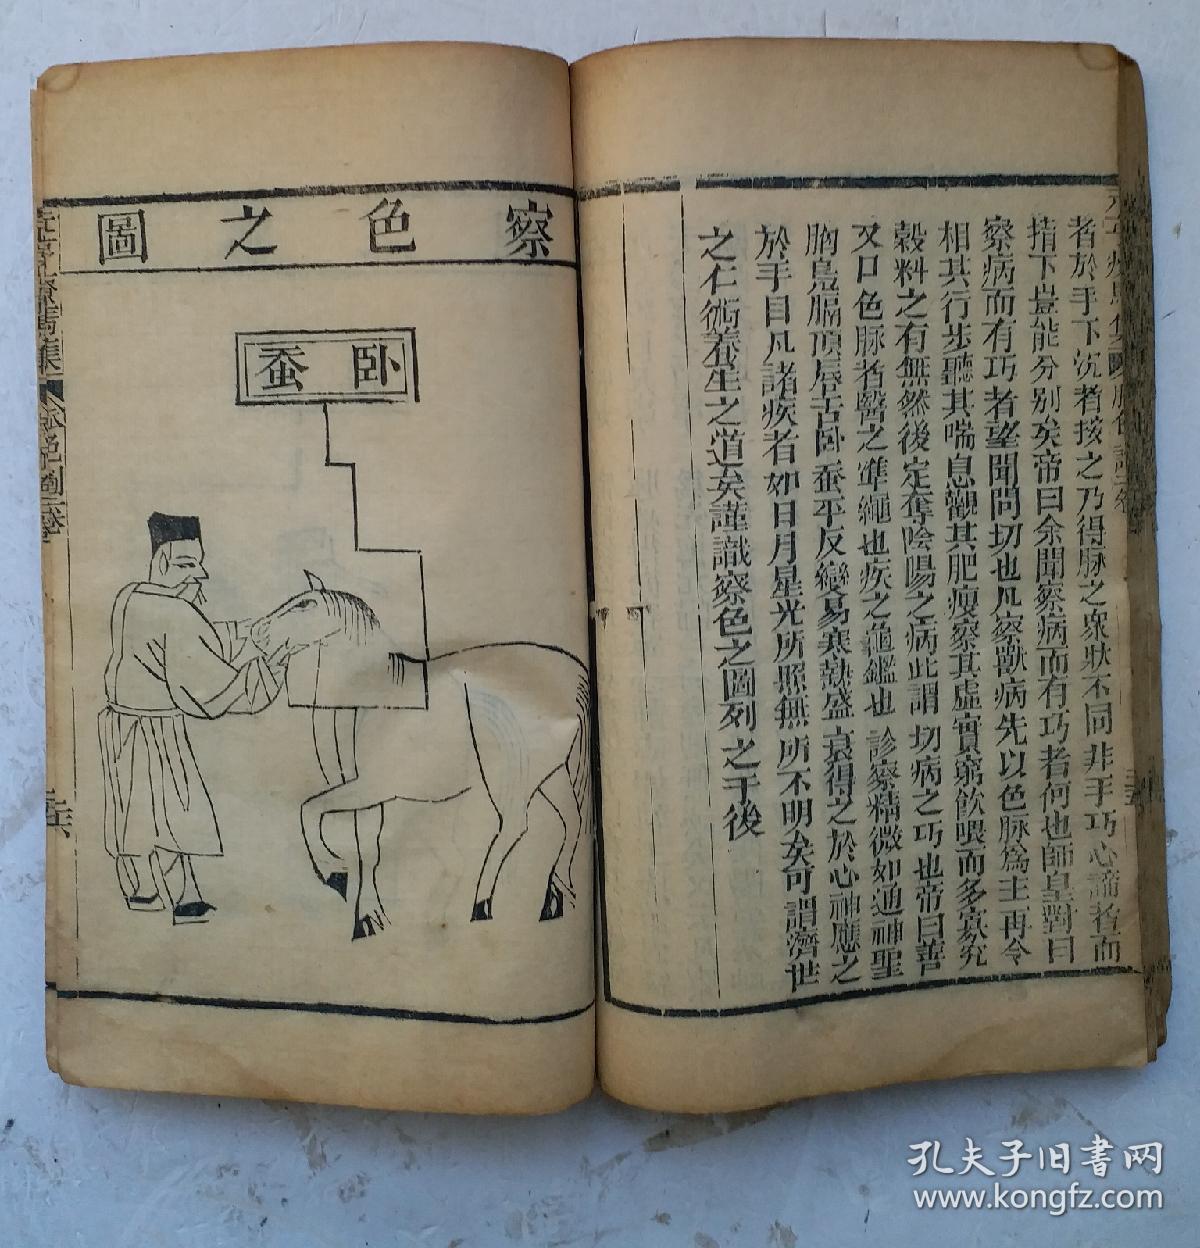 者於手下沉者按之乃得脉之衆狀不同非手巧心諦者而
指下豈能分别矣帝曰余聞察病而有巧者何也師皇對曰
察病而有巧者望聞問切也凡察獸病先以色脉為主再令
相其行步聽其喘息觀其肥瘦察其虛實窮飲喂而多寡究
穀料之有無然後定奪陰陽之病此謂切病之巧也帝曰善
又口色脉者醫之準繩也疾之龜鑑也診察精微如通神聖
胸凫膈頂唇舌卧蚕平反變易寒熱盛衰得之於心神應之
於手目凡諸疾者如日月星光所照無所不明矣可謂濟世
之仁術養生之道矣謹識察色之圖列之于後
察色之圖
卧蚕
孔夫子旧书网
www.kongfz.com